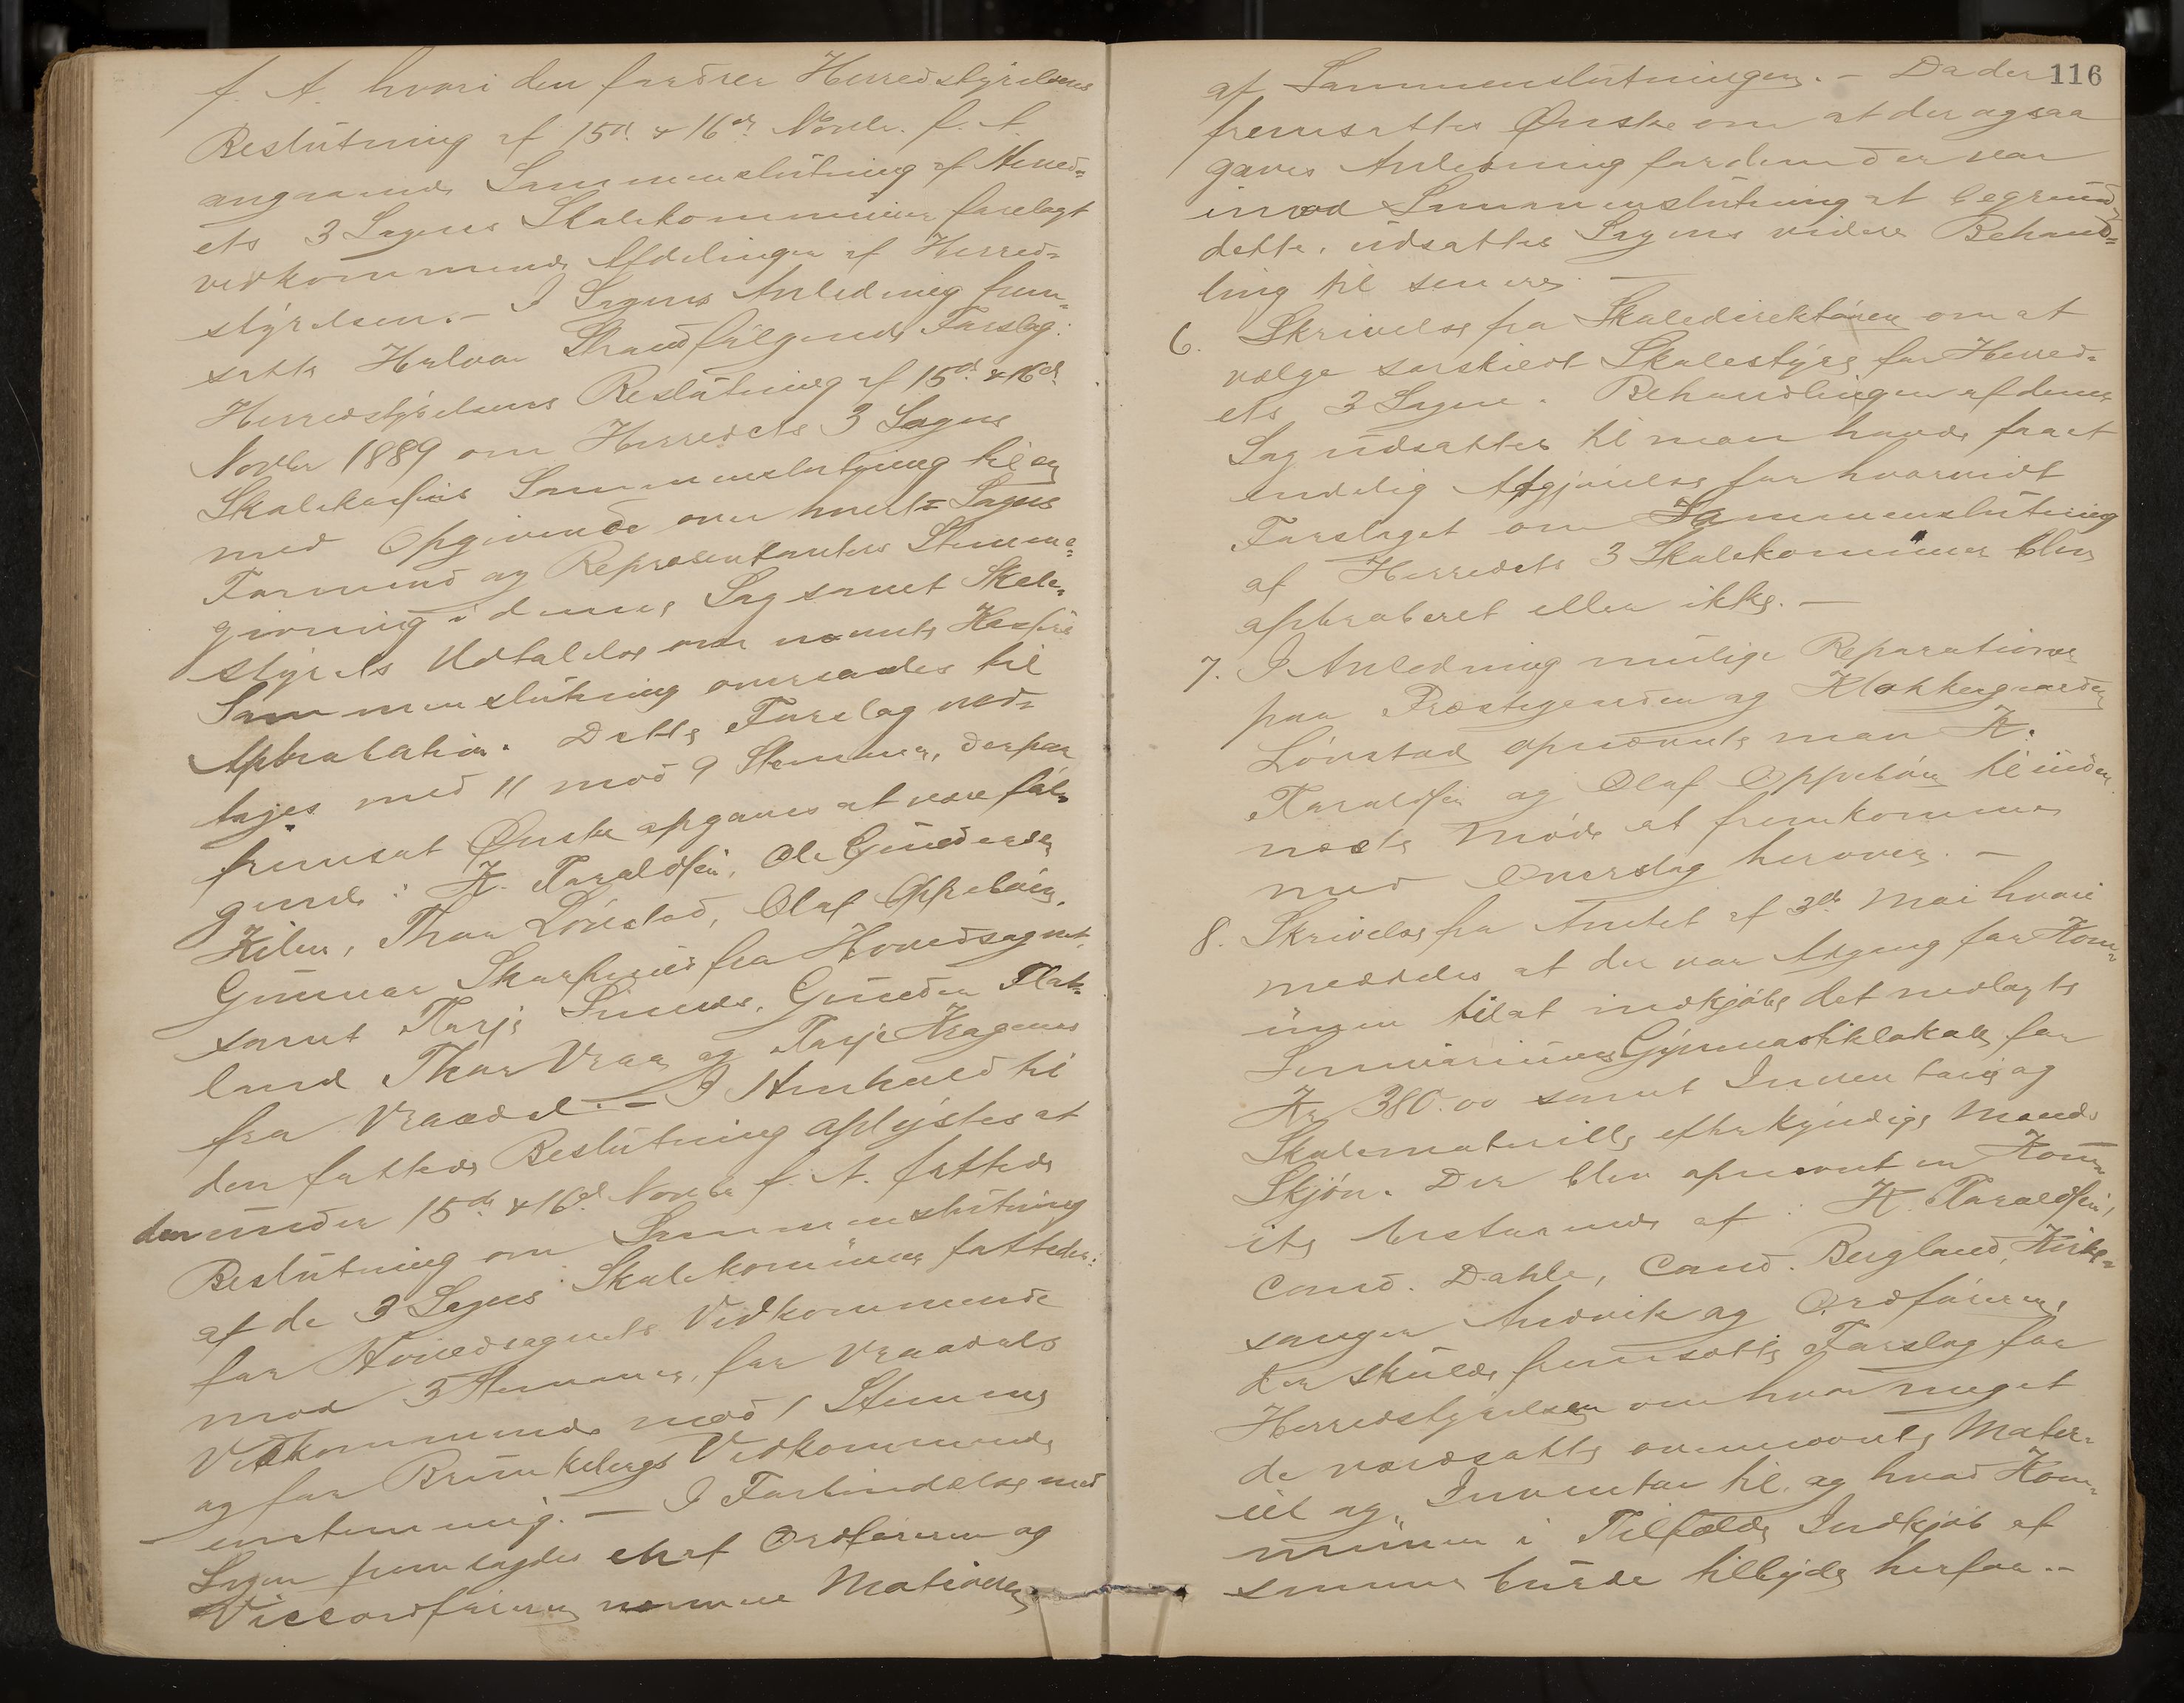 f. A. hvori den fordrer Herredstyrelsens
Beslutning af 15de & 16de Novbr. f. A.
angaaende Sammenslutning af Herred-
ets 3 Sognes Skolekommuner forelagt
vedkommende Afdelinger af Herred-
styrelsen. – I Sagens Anledning frem-
satte Halvor Strand følgende Forslag:
Herredstyrelsens Beslutning af 15de & 16de
Novbr 1889 om Herredets 3 Sognes
Skolekasses Sammenslutning til en
med Opgivende over hvert Sogns
Formænd og Repræsentanters Stemme-
givning i denne Sag samt Skole-
styrets Udtalelse om nævnte Kasses
Sammenslutning oversendes til
Approbation. Dette Forslag ved-
toges med 11 mod 9 Stemmer, derpaa
fremsat Ønske opgaves at være føl-
gende: K. Taraldsen, Ole Gundersen
Kilen, Thor Lønstad, Olaf Oppebøen,
Gunnar Skarprud fra Hovedsognet,
samt Tarje Simes, Gunder Flat-
land Thor Vraa og Tarje Kragenes
fra Vraadal. – I Henhold til
den fattede Beslutning oplystes at
den under 15de & 16de Novbr f. A. fattede
Beslutning om Sammenslutning
af de 3 Sognes Skolekommuner fattedes:
for Hovedsognets Vedkommende
mod 3 Stemmer, for Vraadals
Vedkommende mod 1 Stemme
og for Brunkebergs Vedkommende
enstemmig. – I Forbindelse med
Sagen fremlagdes et af Ordføreren og
Viceordføreren Motiver
af Sammenslutningen. – Da der 116
fremsattes Ønske om at der ogsaa
gaves Anledning for dem der var
imod Sammenslutning at begrunde
dette, udsattes Sagens videre Behand-
ling til senere. –
6. Skrivelse fra Skoledirektøren om at
vælge særskilt Skolestyre for Herred-
ets 3 Sogne. Behandlingen af denne
Sag udsattes til man havde faaet
endelig Afgjørelse for hvorvidt
Forslaget om Sammenslutning
af Herredets 3 Skolekommuner blev
approberet eller ikke. –
7. I Anledning mulige Reparationer
paa Præstegaarden og Klokkergaarden
Lønstad opnævnte man K.
Taraldsen og Olaf Oppebøen til inden
næste Møde at fremkomme
med Overslag herover. –
8. Skrivelse fra Amtet af 3de Mai hvori
meddeles at der var Adgang for Kom-
munen til at indkjøbe det nedlagte
Seminariums Gymnastiklokale for
Kr 380.00 samt Inventarie og
Skolemateriell efter kyndige Mænds
Skjøn. Der blev opnævnt en Kom-
ite bestaaende af: K. Taraldsen,
Cand. Dahle, Cand. Bergland, Kirke-
sanger Andvik og Ordføreren,
der skulde fremsætte Forslag for
Herredstyrelsen om hvor meget
de værdsatte ovennævnte Mater-
iel og Inventar til, og hvad Kom-
munen i Tilfælde Indkjøb af
samme burde tilbyde herfor. –